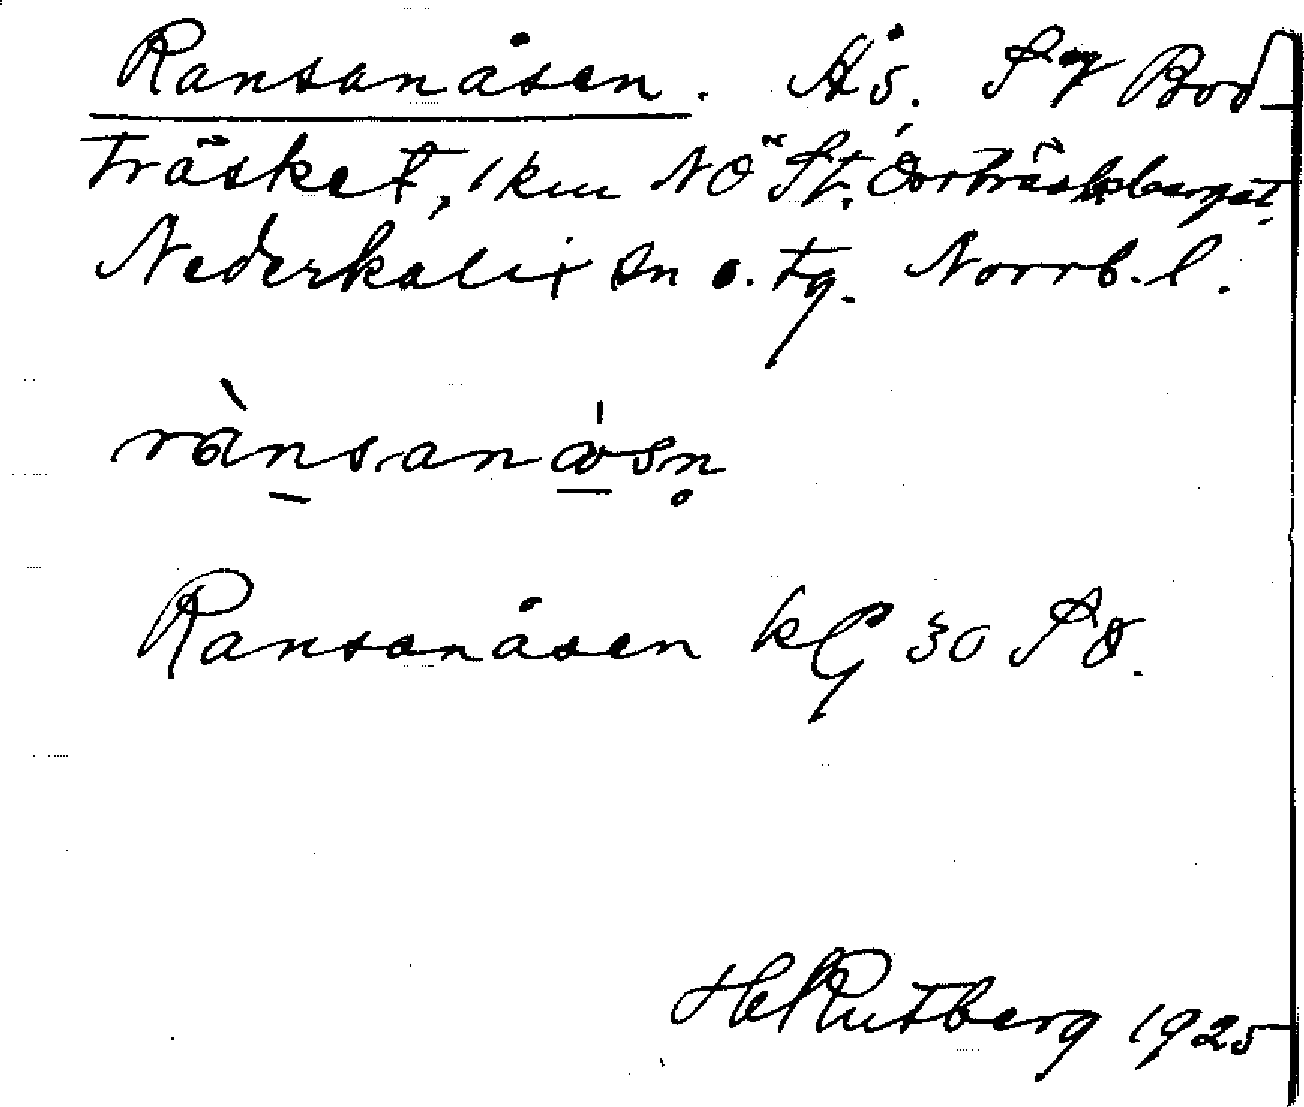 Ransanåsen. Ås. På Bod
träsket, 1 km NÖ St.
Nederkalix sn o. tg. Norrb. l.
rànsanåsn
Ransanåsen kG 30 SÖ.
Hel Rutberg 1925